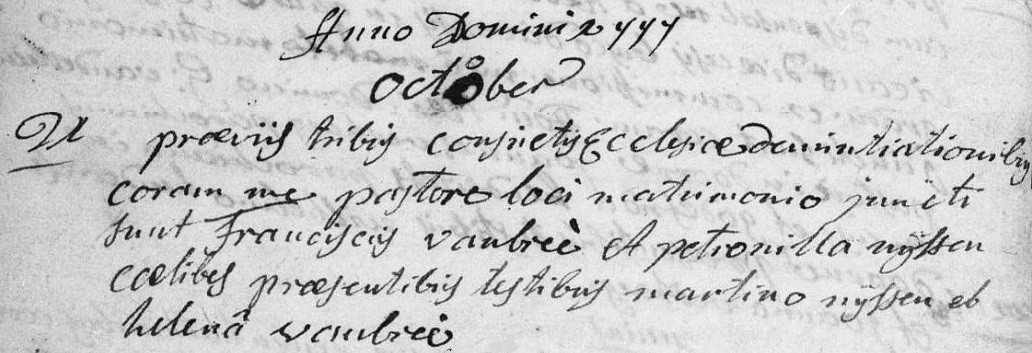 Anno Domini 1777
October
21 præviis tribus consuetis Ecclesiæ denuntiationibus
coram me pastore loci matrimonio juncti
sunt Franciscus vanbreè et petronilla nijssen
cœlibes præsentibus testibus martino nijssen et
helenâ vanbreè